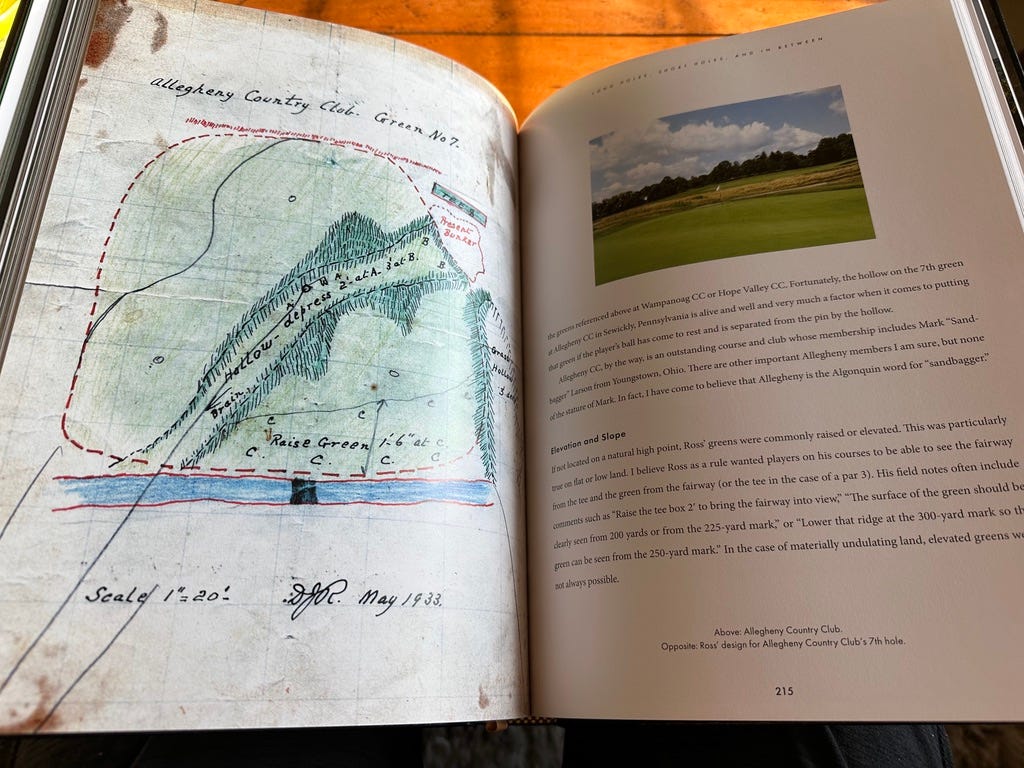 Allegheny Country Club. Green No 7.
TEE 8
Present
Bunker
B
B
A.
Hollow-depress 2' at A. 3' at B.
Drain.
Grass
Hollow
C
C
C
C
Raise Green 1'-6" at C.
C.
C.
C.
Scale 1" = 20'-
DJR. May 1933.
LONG HOLES, SHORT HOLES, AND IN BETWEEN
the greens referenced above at Wampanoag CC or Hope Valley CC. Fortunately, the hollow on the 7th green
at Allegheny CC in Sewickly, Pennsylvania is alive and well and very much a factor when it comes to putting
that green if the player's ball has come to rest and is separated from the pin by the hollow.
Allegheny CC, by the way, is an outstanding course and club whose membership includes Mark "Sand-
bagger" Larson from Youngstown, Ohio. There are other important Allegheny members I am sure, but none
of the stature of Mark. In fact, I have come to believe that Allegheny is the Algonquin word for "sandbagger."
Elevation and Slope
If not located on a natural high point, Ross' greens were commonly raised or elevated. This was particularly
true on flat or low land. I believe Ross as a rule wanted players on his courses to be able to see the fairway
from the tee and the green from the fairway (or the tee in the case of a par 3). His field notes often include
comments such as "Raise the tee box 2' to bring the fairway into view," "The surface of the green should be
clearly seen from 200 yards or from the 225-yard mark," or "Lower that ridge at the 300-yard mark so th
green can be seen from the 250-yard mark." In the case of materially undulating land, elevated greens we
not always possible.
Above: Allegheny Country Club.
Opposite: Ross' design for Allegheny Country Club's 7th hole.
215